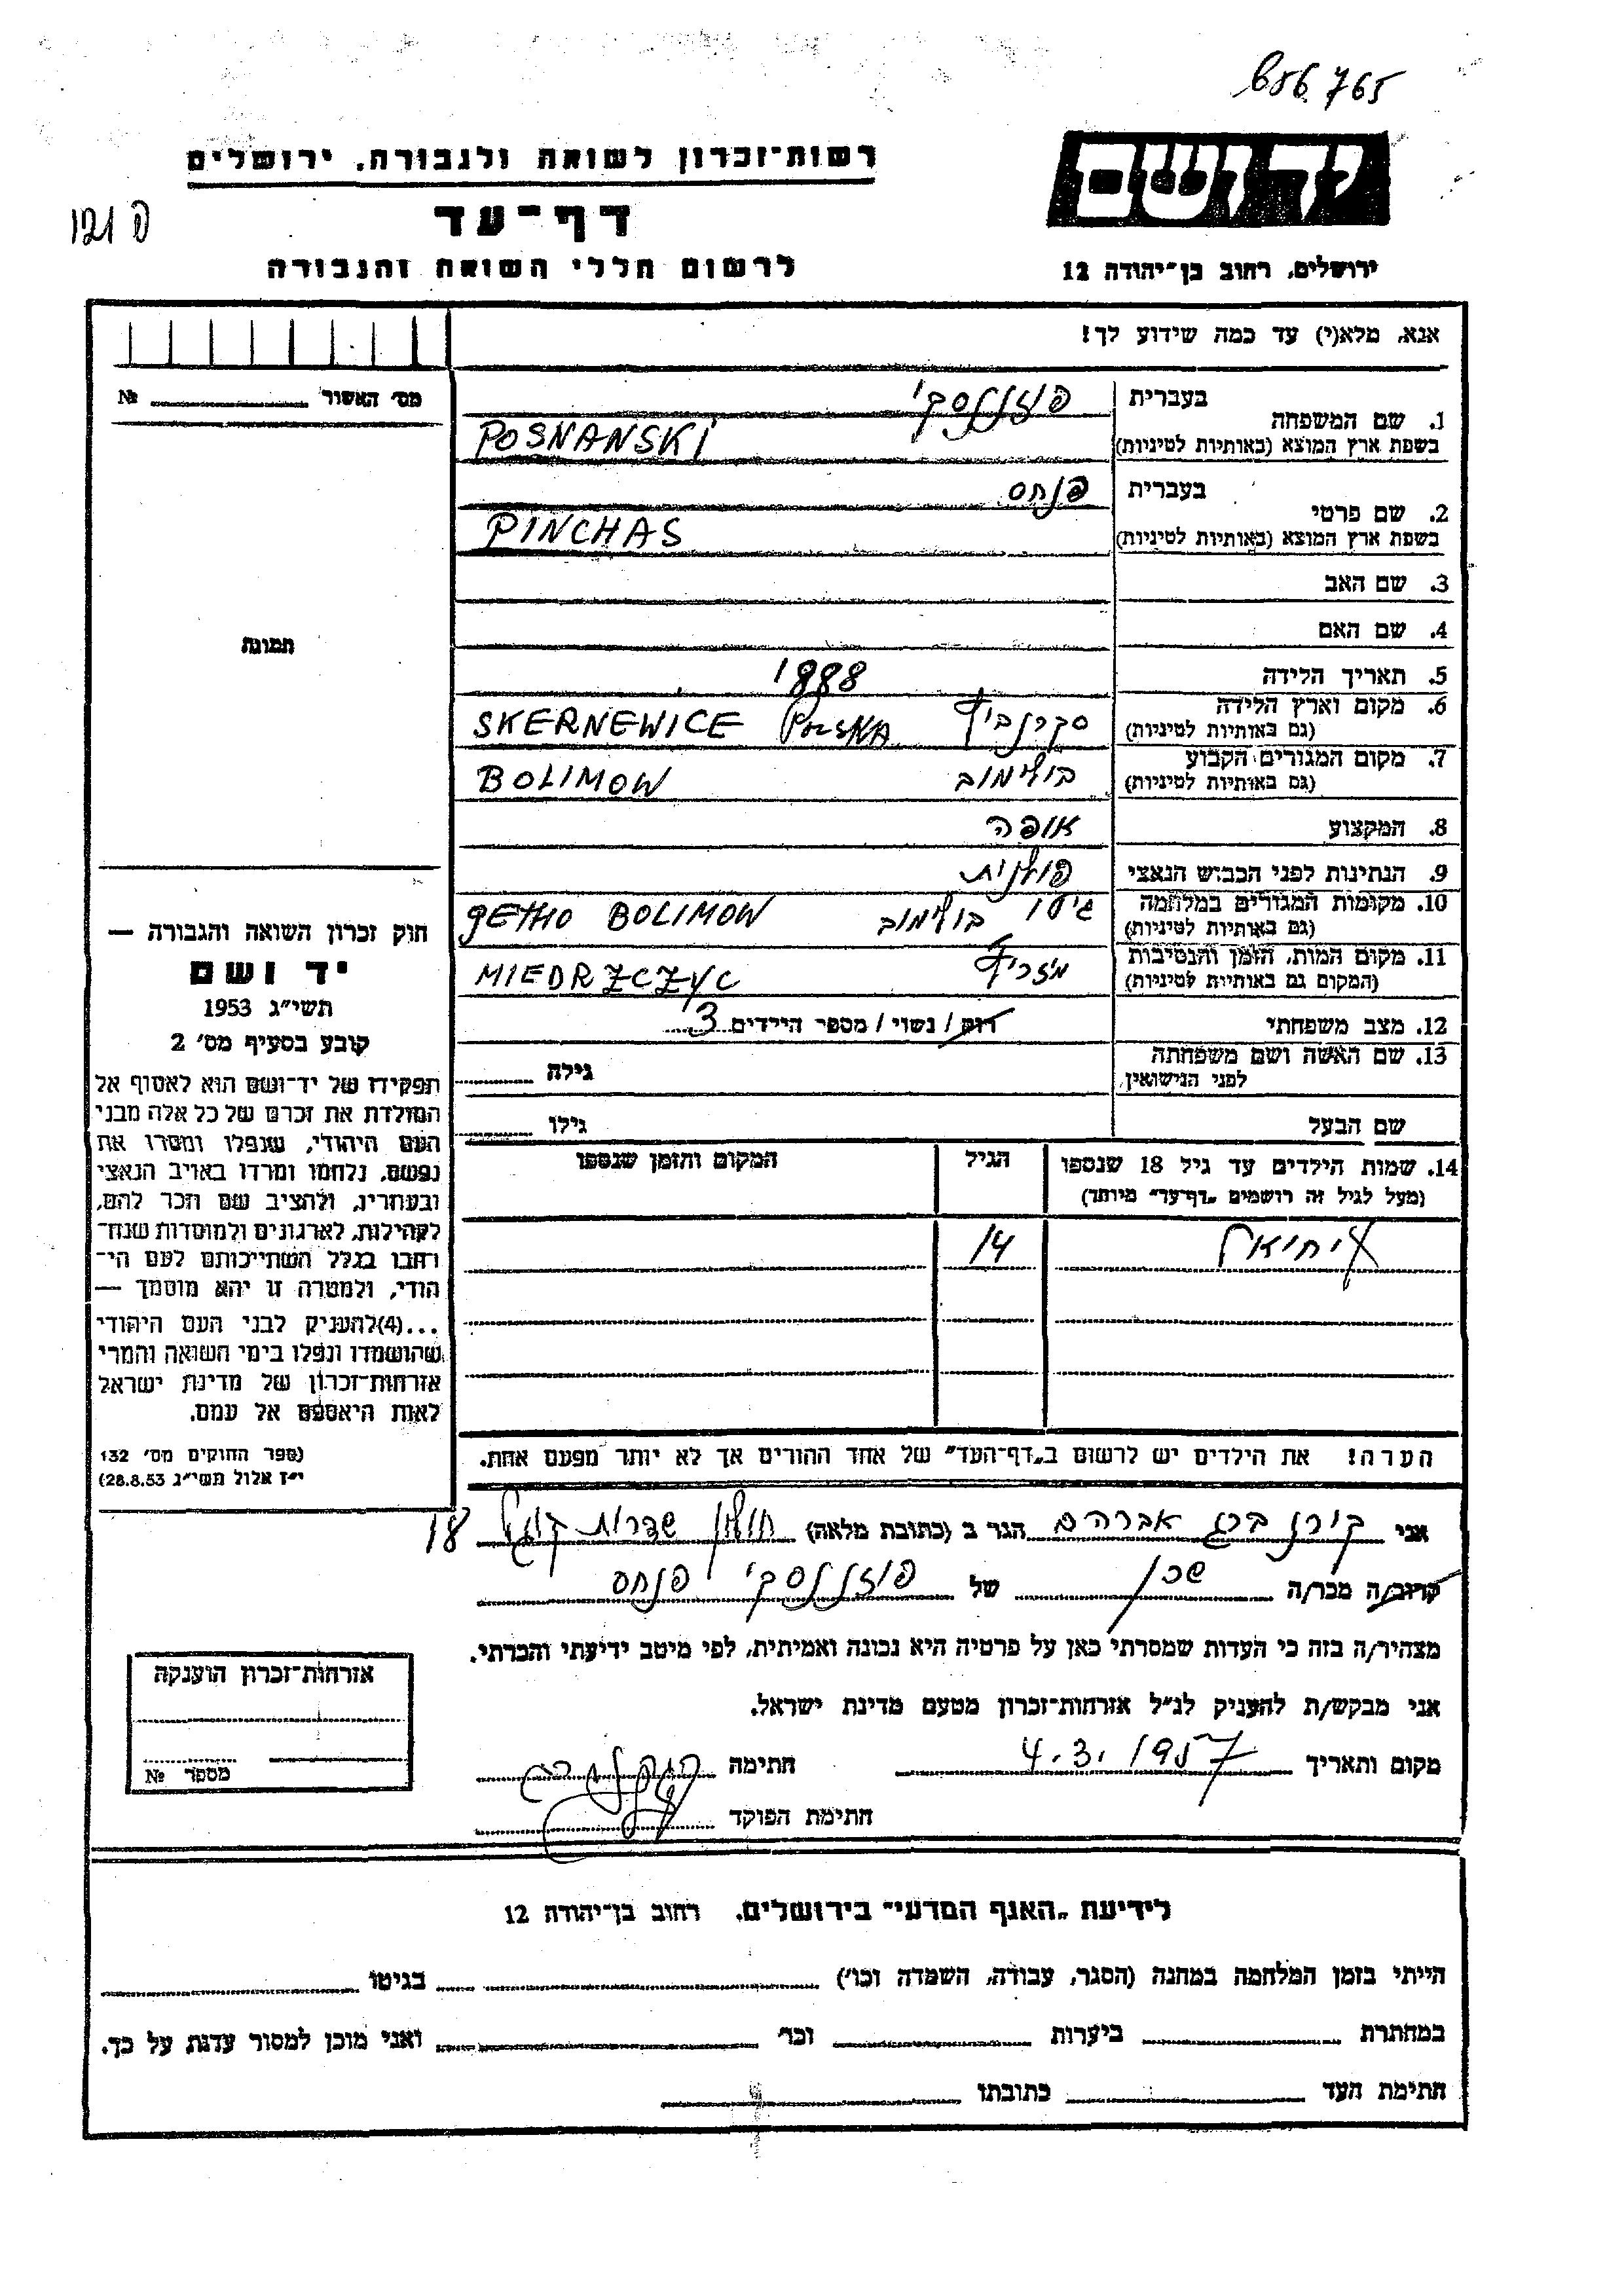 656.765
יד ושם
רשות־זכרון לשואה ולגבורה, ירושלים
דף־עד
פ 121
ירושלים, רחוב בן־יהודה 12
לרשום חללי השואה והגבורה
אנא, מלא(י) עד כמה שידוע לך!
מס׳ האשור № 
בעברית פוזננסקי
1. שם המשפחה
בשפת ארץ המוצא (באותיות לטיניות) POSNANSKI
בעברית פנחס
2. שם פרטי
בשפת ארץ המוצא (באותיות לטיניות) PINCHAS
3. שם האב
4. שם האם
תמונה
5. תאריך הלידה 1888
6. מקום וארץ הלידה
(גם באותיות לטיניות) סקרנביץ SKERNEWICE POLSKA
7. מקום המגורים הקבוע
(גם באותיות לטיניות) בולימוב BOLIMOW
8. המקצוע אופה
9. הנתינות לפני הכבוש הנאצי פולנית
10. מקומות המגורים במלחמה
(גם באותיות לטיניות) גיטו בולימוב GETHO BOLIMOW
11. מקום המות, הזמן והנסיבות
(המקום גם באותיות לטיניות) מזריץ MIEDRZCZYC
12. מצב משפחתי רווק / נשוי / מספר הילדים 3
13. שם האשה ושם משפחתה
לפני הנישואין, גילה
שם הבעל גילו
14. שמות הילדים עד גיל 18 שנספו הגיל המקום והזמן שנספו
(מעל לגיל זה רושמים „דף־עד” מיוחד)
יחיאל 14
הערה! את הילדים יש לרשום ב„דף־העד” של אחד ההורים אך לא יותר מפעם אחת.
חוק זכרון השואה והגבורה —
יד ושם
תשי״ג 1953
קובע בסעיף מס׳ 2
תפקידו של יד־ושם הוא לאסוף אל
המולדת את זכרם של כל אלה מבני
העם היהודי, שנפלו ומסרו את
נפשם, נלחמו ומרדו באויב הנאצי
ובעוזריו, ולהציב שם וזכר להם,
לקהילות, לארגונים ולמוסדות שנח־
רבו בגלל השתייכותם לעם הי־
הודי, ולמטרה זו יהא מוסמך —
...(4)להעניק לבני העם היהודי
שהושמדו ונפלו בימי השואה והמרי
אזרחות־זכרון של מדינת ישראל
לאות היאספם אל עמם.
(ספר החוקים מס׳ 132
י״ז אלול תשי״ג 28.8.53)
אני אברהם הגר ב (כתובת מלאה) חולון שדרות קוגל 18
קרוב/ה מכר/ה שכן של פוזננסקי פנחס
מצהיר/ה בזה כי העדות שמסרתי כאן על פרטיה היא נכונה ואמיתית, לפי מיטב ידיעתי והכרתי.
אני מבקש/ת להעניק לנ״ל אזרחות־זכרון מטעם מדינת ישראל.
מקום ותאריך 4.3.1957 חתימה
חתימת הפוקד
אזרחות־זכרון הוענקה
מספר №
לידיעת „האגף המדעי” בירושלים, רחוב בן־יהודה 12
הייתי בזמן המלחמה במחנה (הסגר, עבודה, השמדה וכו׳) בגיטו
במחתרת ביערות וכו׳ ואני מוכן למסור עדות על כך.
חתימת העד כתובתו